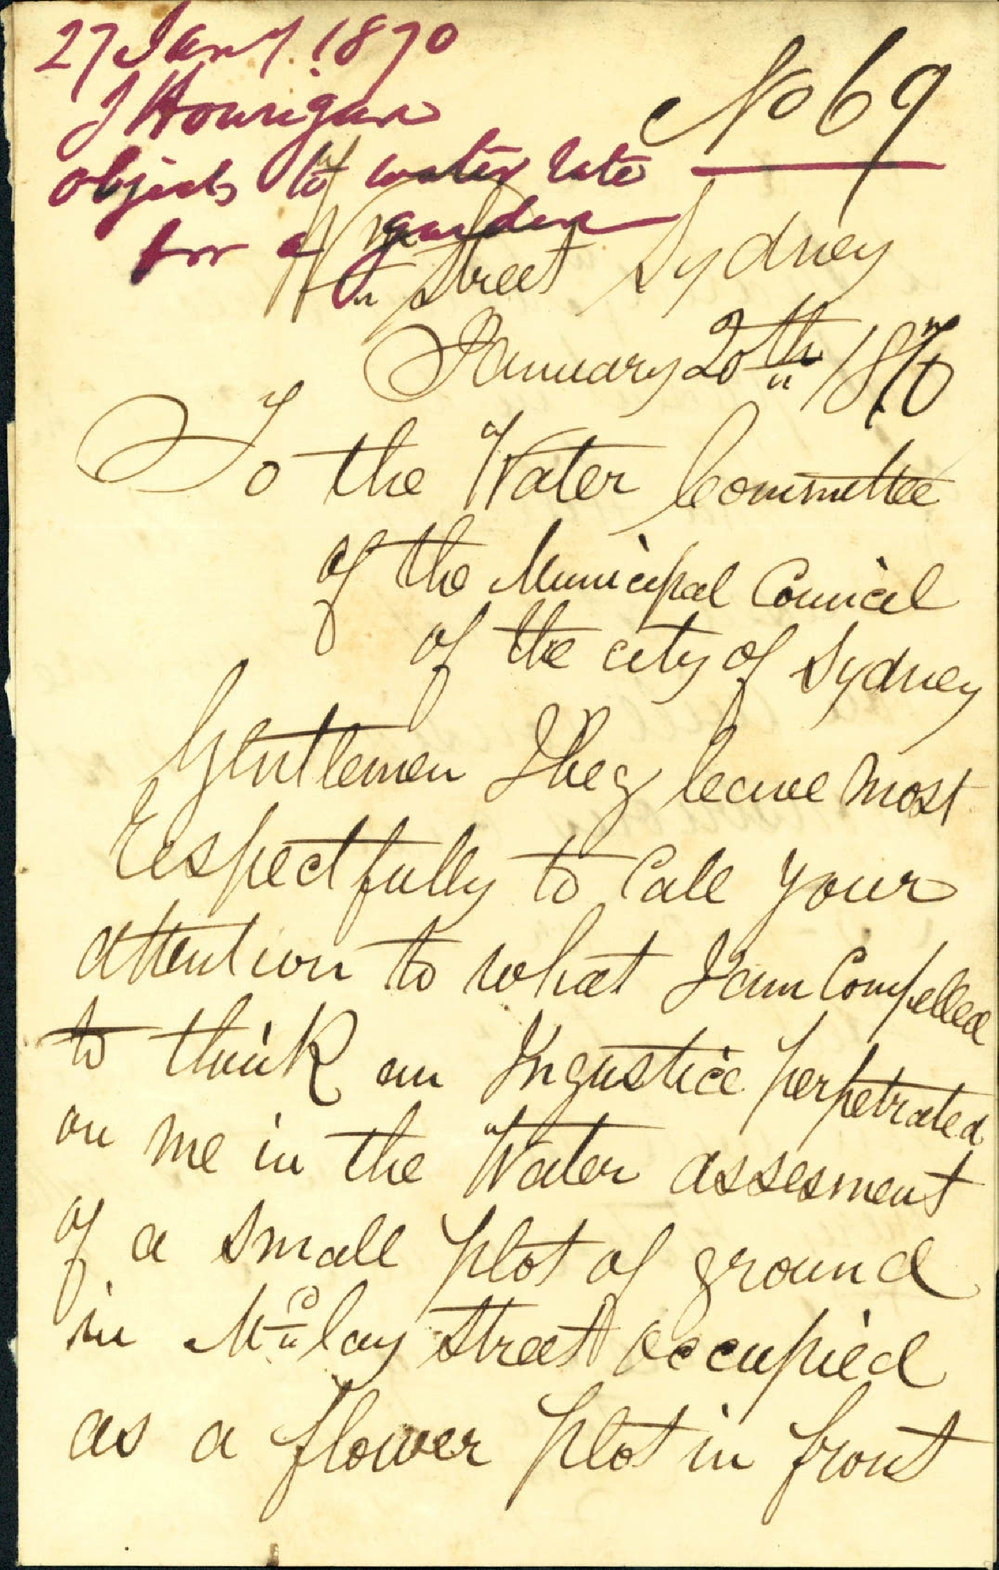 27 Jany. 1870
J Hourigan
objects to water rate
for a garden
No 69
Wm Street Sydney
January 20th 1870
To the Water Committee
of the Municipal Council
of the city of Sydney
Gentlemen I beg leave most
respectfully to Call your
attention to what I am Compelled
to think an Ingustice perpetrated
on me in the Water assesment
of a small plot of ground
in Mc lay Street occupied
as a flower plot in front